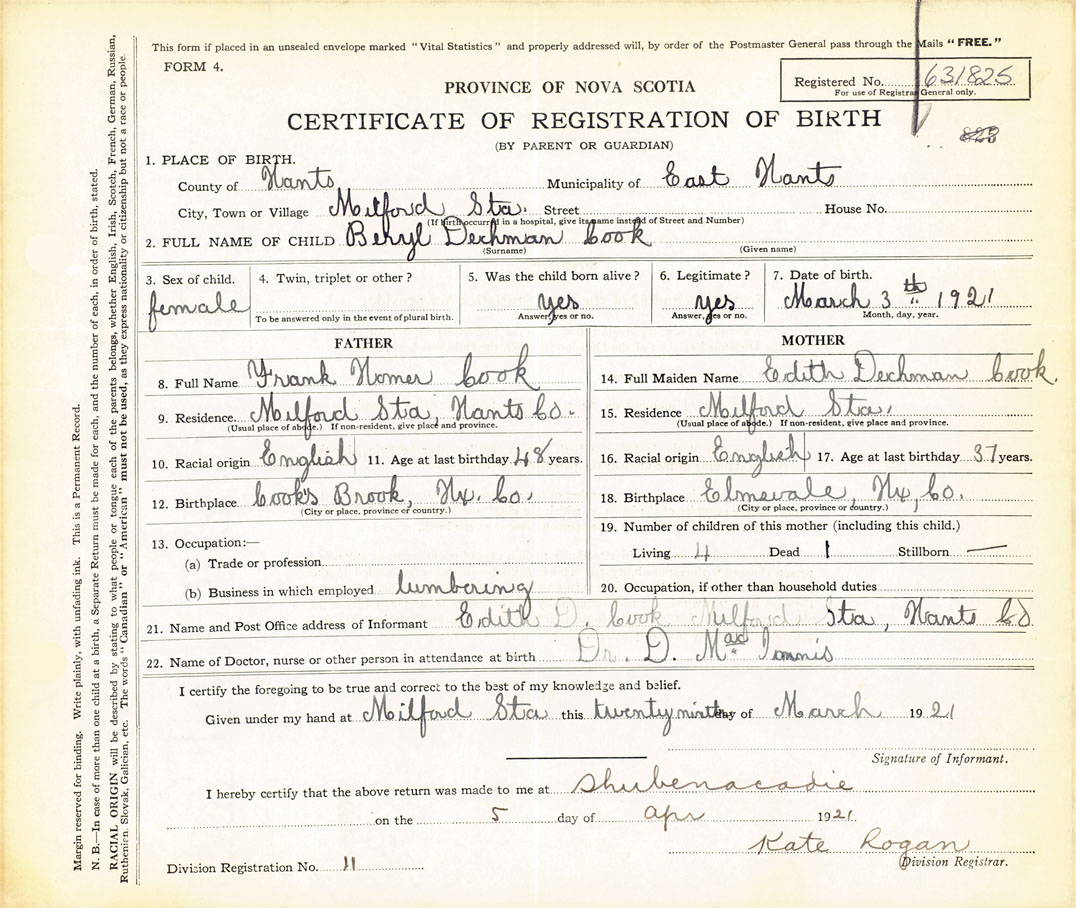 This form if placed in an unsealed envelope marked "Vital Statistics" and properly addressed will, by order of the Postmaster General pass through the Mails "FREE."
FORM 4.
Registered No. 631825
For use of Registrar General only.
PROVINCE OF NOVA SCOTIA
CERTIFICATE OF REGISTRATION OF BIRTH
(BY PARENT OR GUARDIAN)
1. PLACE OF BIRTH.
County of Hants Municipality of East Hants
City, Town or Village Milford Sta. Street House No.
(If birth occurred in a hospital, give its name instead of Street and Number)
2. FULL NAME OF CHILD Beryl Dechman Cook
(Surname) (Given name)
3. Sex of child. female
4. Twin, triplet or other?
To be answered only in the event of plural birth.
5. Was the child born alive? yes
Answer, yes or no.
6. Legitimate? yes
Answer, yes or no.
7. Date of birth. March 3th 1921
Month, day, year.
FATHER
8. Full Name Frank Homer Cook
9. Residence. Milford Sta, Hants Co.
(Usual place of abode.) If non-resident, give place and province.
10. Racial origin English 11. Age at last birthday 48 years.
12. Birthplace Cook's Brook, Hx. Co.
(City or place, province or country.)
13. Occupation:—
(a) Trade or profession
(b) Business in which employed lumbering
MOTHER
14. Full Maiden Name Edith Dechman Cook.
15. Residence Milford Sta.
(Usual place of abode.) If non-resident, give place and province.
16. Racial origin English 17. Age at last birthday 37 years.
18. Birthplace Elmsvale, Hx, Co.
(City or place, province or country.)
19. Number of children of this mother (including this child.)
Living 4 Dead 1 Stillborn —
20. Occupation, if other than household duties
21. Name and Post Office address of Informant Edith D. Cook Milford Sta, Hants Co
22. Name of Doctor, nurse or other person in attendance at birth Dr. D. Mac Innnis
I certify the foregoing to be true and correct to the best of my knowledge and belief.
Given under my hand at Milford Sta this twenty ninth day of March 1921
Signature of Informant.
I hereby certify that the above return was made to me at Shubenacadie
on the 5 day of Apr 1921.
Kate Logan
Division Registrar.
Division Registration No. 11
Margin reserved for binding. Write plainly, with unfading ink. This is a Permanent Record.
N. B.—In case of more than one child at a birth, a Separate Return must be made for each, and the number of each, in order of birth, stated.
RACIAL ORIGIN will be described by stating to what people or tongue each of the parents belongs, whether English, Irish, Scotch, French, German, Russian,
Ruthenian, Slovak, Galician, etc. The words "Canadian" or "American" must not be used, as they express nationality or citizenship but not a race or people.